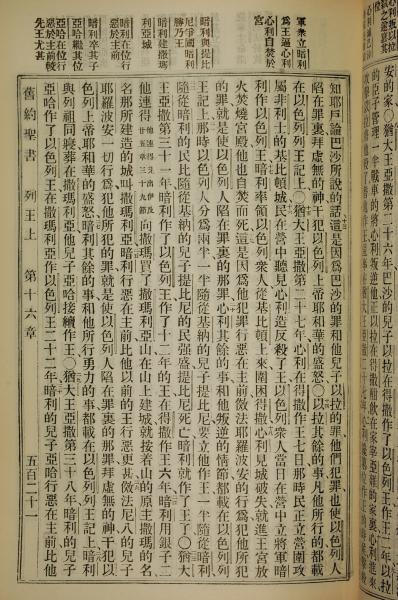 軍衆立暗利
爲王逼心利
心利自焚於
宮
暗利與提比
尼爭國暗利
勝乃王
暗利建撒瑪
利亞城
暗利在位行
惡於主前
暗利卒其子
亞哈繼其位
亞哈在位行
惡於主前較
先王尤甚
知耶戶論巴沙所說的話這是因爲巴沙的罪和他兒子以拉的罪他們犯罪也使以色列人
陷在罪裏拜虛無的神干犯以色列上帝耶和華的盛怒〇以拉其餘的事凡他所行的都載
在以色列列王記上〇猶大王亞撒第二十七年心利在得撒作王七日那時民正立營圍攻
屬非利士的基比頓城民在營中聽見心利造反殺了王以色列衆人當日在營中立將軍暗
利作以色列王暗利率領以色列衆人從基比頓上來圍困得撒心利見城破失就進王宮放
火焚燒宮殿他也自焚而死這是因爲他犯罪行惡在主前傚法耶羅波安的行爲犯他所犯
的罪就是使以色列人陷在罪裏的那罪心利其餘的事和他叛逆的情節都載在以色列列
王記上那時以色列人分爲兩半一半隨從基納的兒子提比尼要立他作王一半隨從暗利
隨從暗利的民比隨從基納的兒子提比尼的民强盛提比尼死亡暗利就作了王了〇猶大
王亞撒第三十一年暗利作了以色列王作了十二年的王在得撒作王六年暗利用銀子二
他連得
向撒瑪買了撒瑪利亞山在山上建城就按着山的原主撒瑪的名
名那所建造的城叫撒瑪利亞暗利行惡在主前比他以前的王行惡更甚傚法尼八的兒子
耶羅波安一切行爲犯他所犯的罪就是使以色列人陷在罪裏的那罪拜虛無的神干犯以
色列上帝耶和華的盛怒暗利其餘的事和他所行勇力的事都載在以色列列王記上暗利
與列祖同寢葬在撒瑪利亞他兒子亞哈接續作王〇猶大王亞撒第三十八年暗利的兒子
亞哈作了以色列王在撒瑪利亞作以色列王二十二年暗利的兒子亞哈行惡在主前比他
舊約聖書 列王上 第十六章 五百二十一